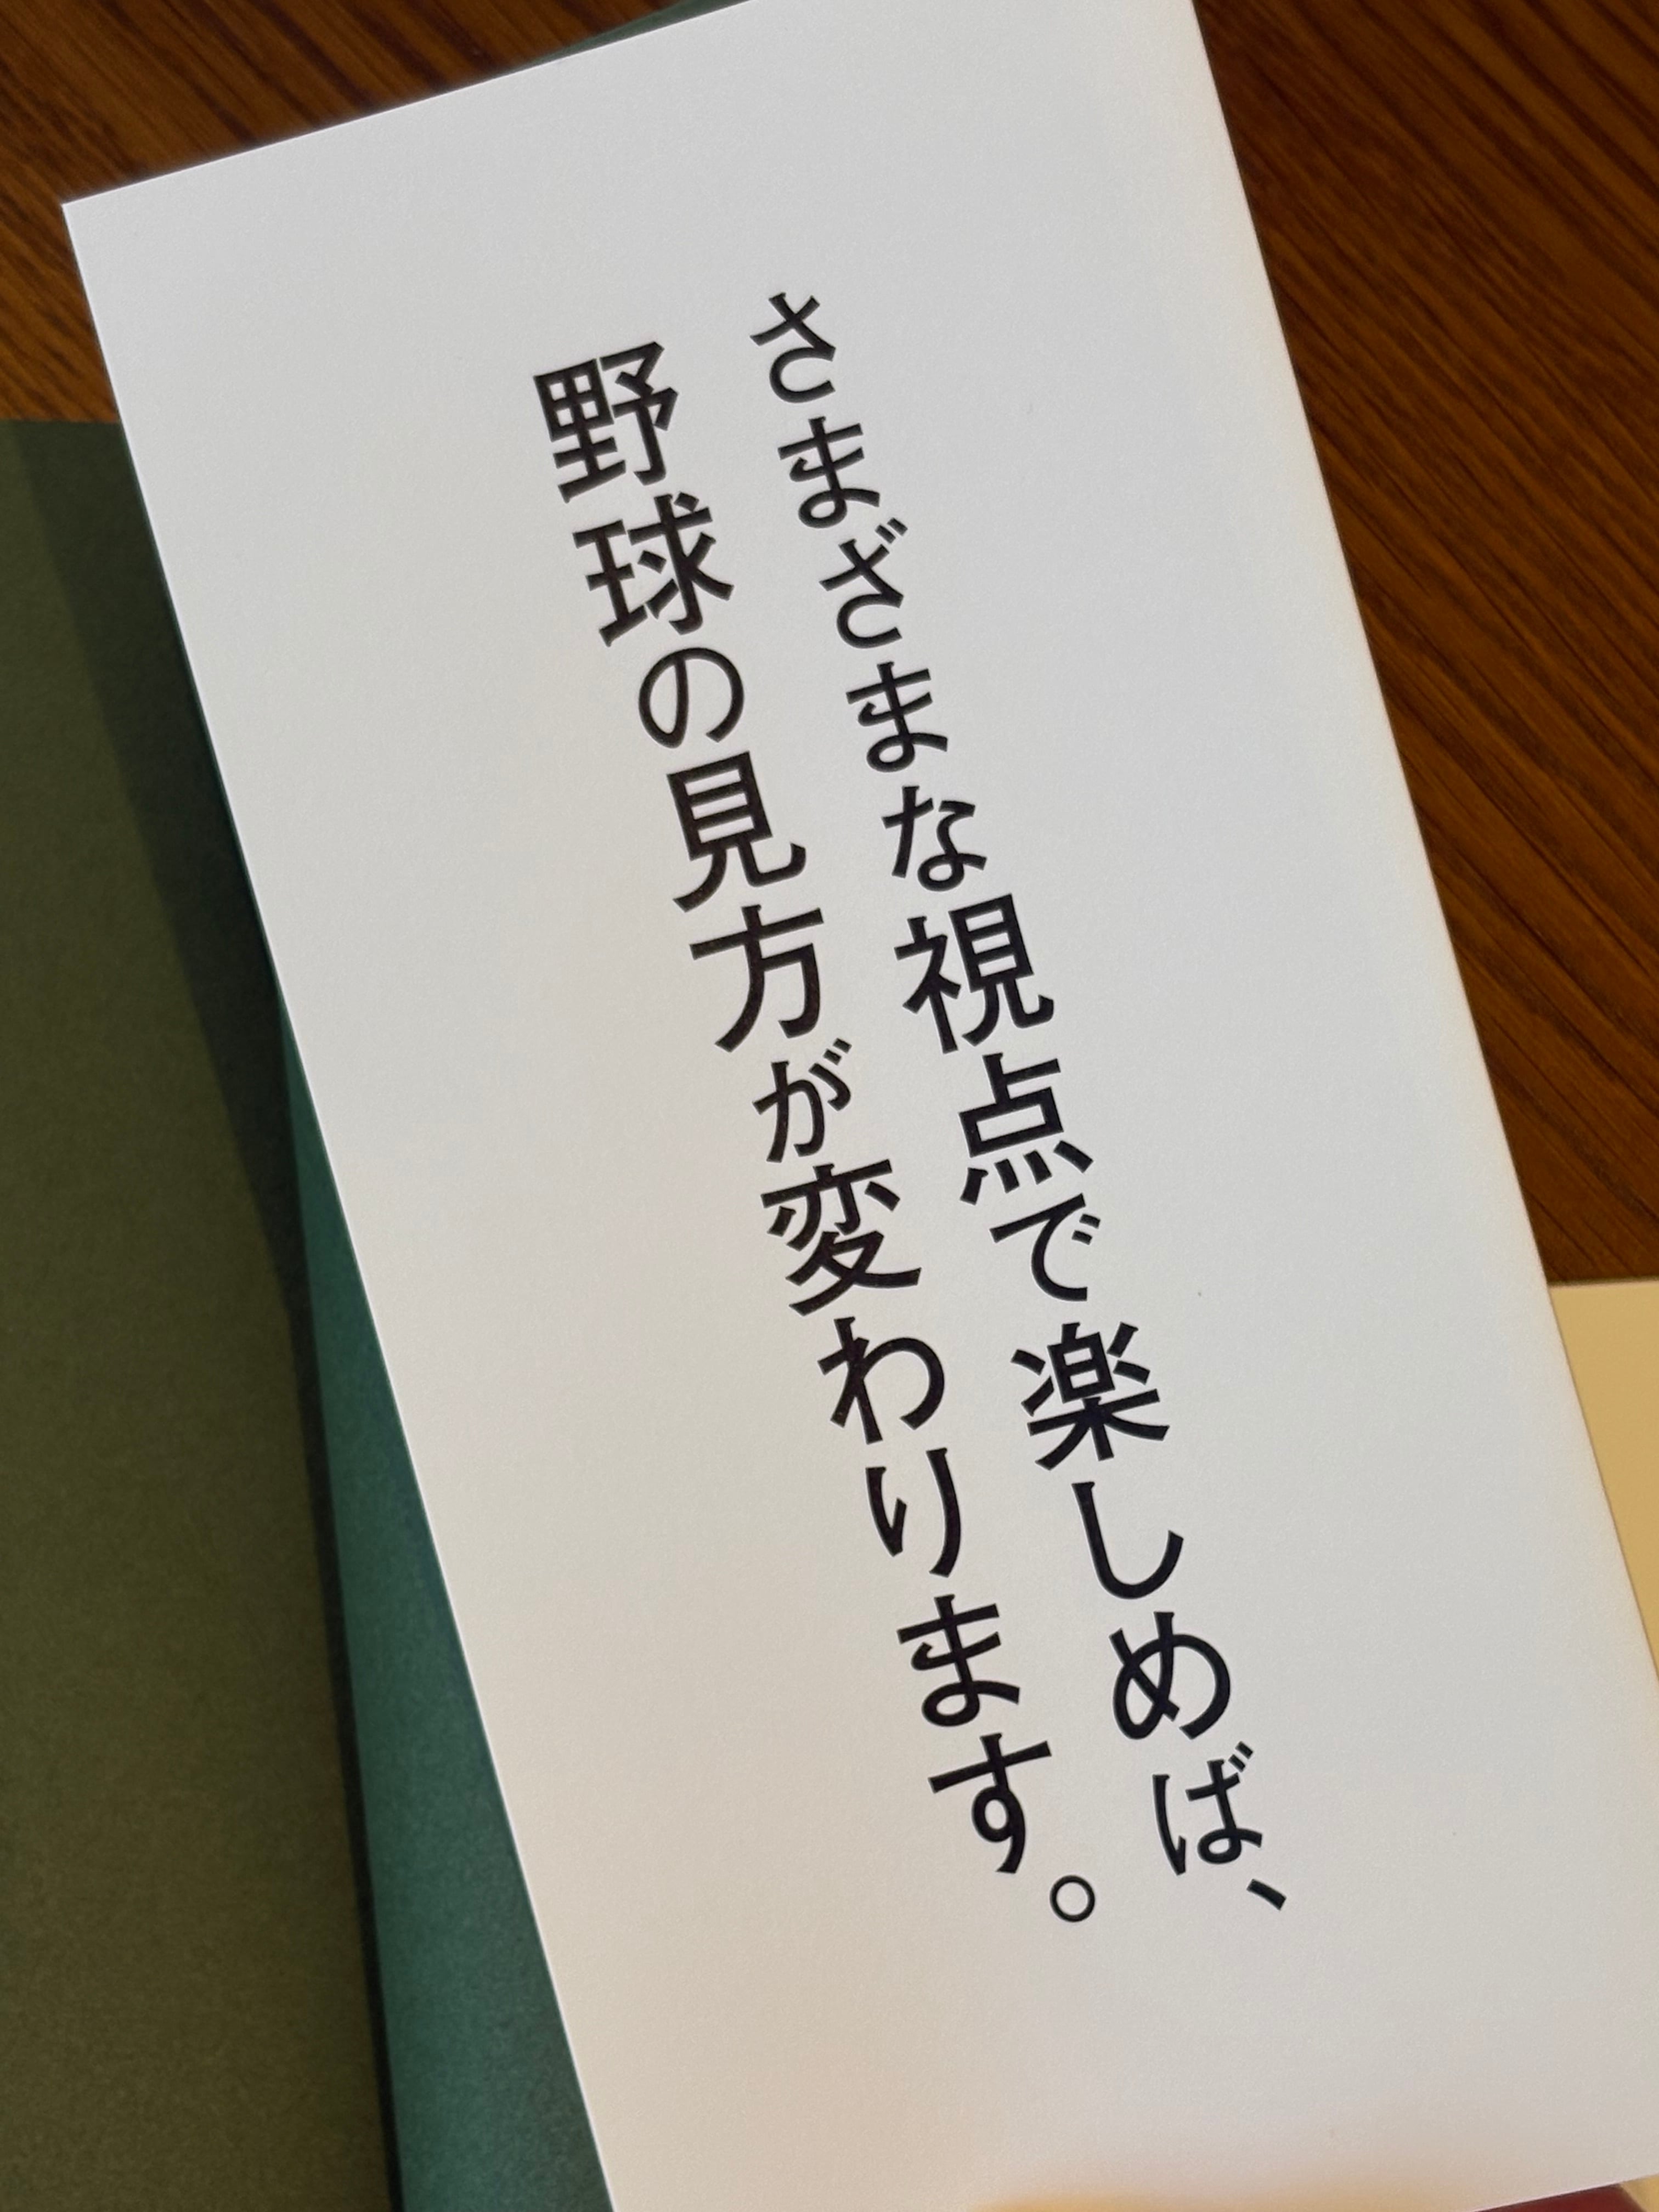 さまざまな視点で楽しめば、
野球の見方が変わります。